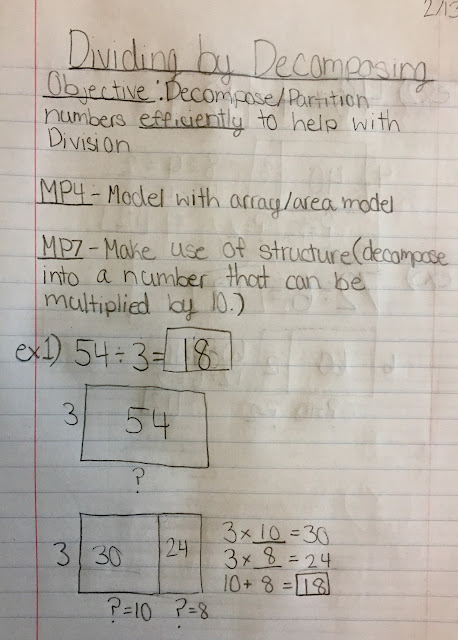 2/13
Dividing by Decomposing
Objective: Decompose/Partition
numbers efficiently to help with
Division
MP4 - Model with array/area model
MP7 - Make use of structure (decompose
into a number that can be
multiplied by 10.)
ex1) 54 ÷ 3 = 18
3 54
?
3 30 24
?=10 ?=8
3 × 10 = 30
3 × 8 = 24
10 + 8 = 18